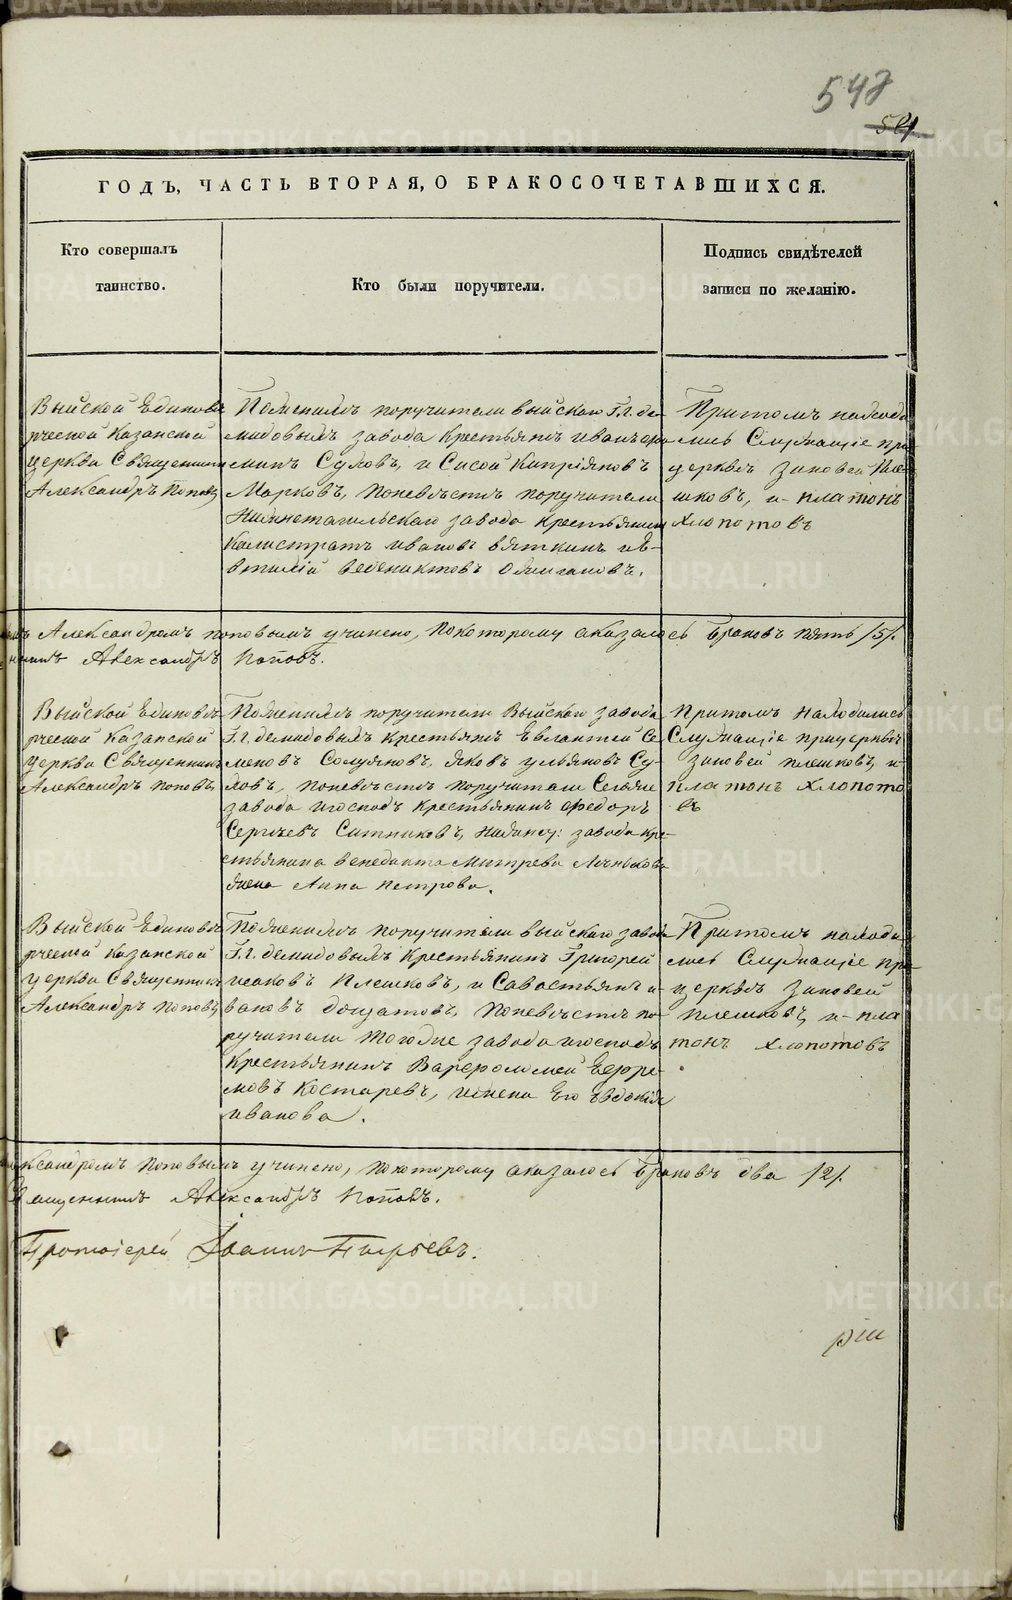 547
501
ГОДЪ, ЧАСТЬ ВТОРАЯ, О БРАКОСОЧЕТАВШИХСЯ.
Кто совершалъ
таинство.
Кто были поручители.
Подпись свидѣтелей
записи по желанію.
Выйской Единовѣ
рческой Казанской
церкви Священникъ
Александръ Поповъ
Поженихѣ поручители выйскаго Г.г. де
мидовыхъ завода крестьянъ иванъ
минъ Суловъ, и Сисой Кипріяновъ
Марковъ, поневѣстѣ поручители
Нижнетагильскаго завода крестьянин
Калистратъ ивановъ вяткинъ и Е-
втихій веденихтовъ Обжигановъ.
Притомъ находи
лись Служащіе при
церквѣ Зиновей Пле
шковъ, и платонъ
Хлопотовъ
Александромъ поповымъ учинено, покоторому аказалось браковъ пять /5/.
Александръ Поповъ.
Выйской Единовѣ
рческой Казанской
церкви Священникъ
Александръ поповъ
Поженихѣ поручители Выйскаго завода
Г.г. демидовыхъ крестьянъ Евлантей Се
меновъ Солуяновъ, яковъ ульяновъ Су-
ловъ, поневѣстѣ поручители
завода игосподъ крестьянинъ Федоръ
Сергѣевъ Ситниковъ, завода кре-
стьянина венедикта Митрева
жена Анна петрова.
Притомъ находились
Служащіе прицерквѣ
зиновей плешковъ, и
платонъ Хлопото
въ
Выйской Единовѣ
рческой Казанской
церкви Священникъ
Александръ Поповъ
Поженихѣ поручители выйскаго завода
Г.г. демидовыхъ Крестьянинъ Григорей
исаковъ Плешковъ, и Савостьянъ и-
вановъ донзатовъ, поневѣстѣ по-
ручители тогоже завода игосподъ
Крестьянинъ Варфоломей Ефре-
мовъ Костаревъ, ижена Его Евдокія
иванова.
Притомъ находи
лись Служащіе при
церквѣ Зиновей
плешковъ, и пла
тонъ Хлопотовъ
ксандромъ поповымъ учинено, покоторому аказалось браковъ два /2/.
Священникъ Александръ Поповъ.
Протоіерей Іоаннъ Пырьевъ.